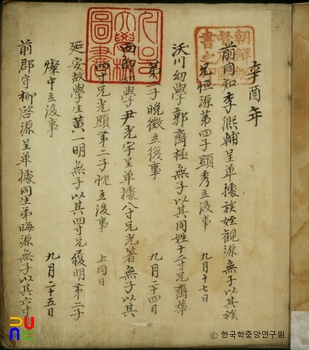 辛酉年
前同知李熙輔呈單據族姪觀源無子以其族
兄恒源第四子顯秀立後事 九月十七日
沃川幼學郭齊極無子以其同姓十二寸兄齊華
第子晩徵立後事 九月二十四日
西部幼學尹光宇呈單據八寸兄光著無子以其
四寸兄光顯第二子忱立後事 上同日
延安故學生黃一明無子以其四寸兄履明第二子
燦中立後事 九月二十五日
前郡守柳啓源呈單據同生弟晦源無子以其六寸
ⓒ 한국학중앙연구원